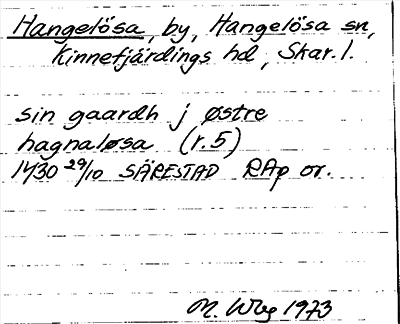 Hangelösa, by, Hangelösa sn,
Kinnefjärdings hd, Skar. l.
sin gaardh j østre
hagnaløsa (r. 5)
1430 29/10 SÄRESTAD RAp or.
M. Wbg 1973